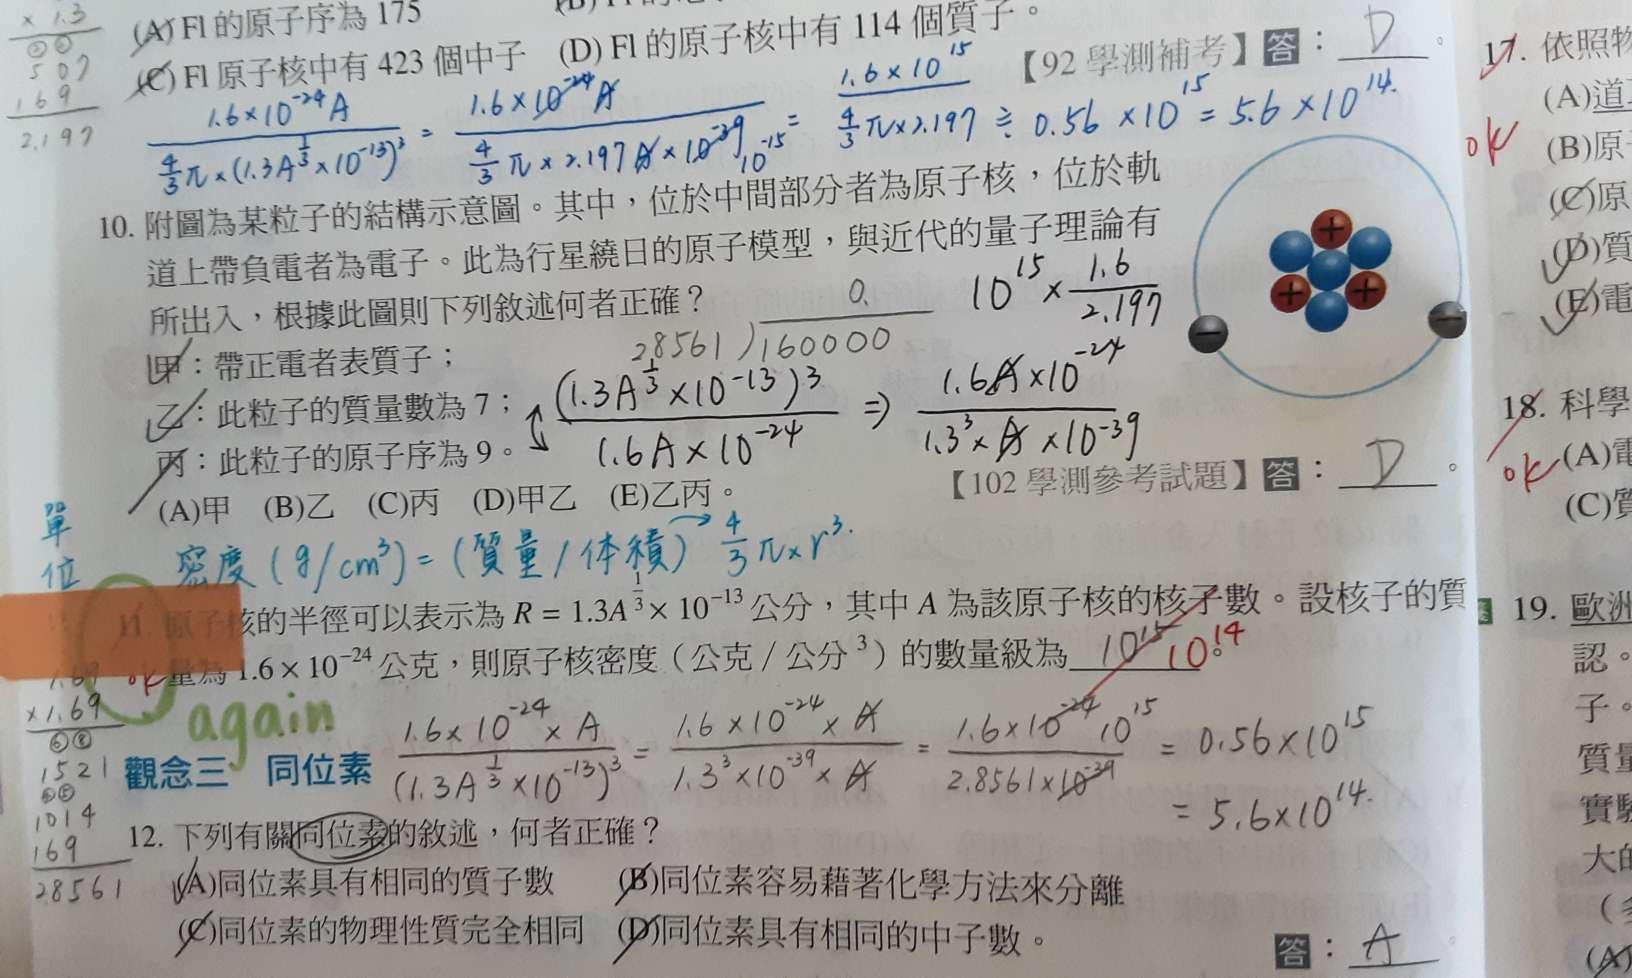 × 1.3
507
169
2.197
(A) Fl 的原子序為 175
(C) Fl 原子核中有 423 個中子 (D) Fl 的原子核中有 114 個質子。
【92 學測補考】答:D。
1.6×10⁻²⁴A / 4/3 π×(1.3A^(1/3)×10⁻¹³)³ = 1.6×10⁻²⁴A / 4/3 π×2.197A×10⁻³⁹ 10⁻¹⁵ = 1.6×10¹⁵ / 4/3 π×2.197 ≒ 0.56×10¹⁵ = 5.6×10¹⁴.
10. 附圖為某粒子的結構示意圖。其中,位於中間部分者為原子核,位於軌
道上帶負電者為電子。此為行星繞日的原子模型,與近代的量子理論有
所出入,根據此圖則下列敘述何者正確?
甲:帶正電者表質子;
乙:此粒子的質量數為 7;
丙:此粒子的原子序為 9。
(A)甲 (B)乙 (C)丙 (D)甲乙 (E)乙丙。
【102 學測參考試題】答:D。
0.
28561)160000
10¹⁵ × 1.6/2.197
(1.3A^(1/3)×10⁻¹³)³ / 1.6A×10⁻²⁴ ⇒ 1.6A×10⁻²⁴ / 1.3³×A×10⁻³⁹
+
+ +
− −
單位
密度(g/cm³)=(質量/体積)→ 4/3 π×r³.
11. 原子核的半徑可以表示為 R = 1.3A^(1/3) × 10⁻¹³ 公分,其中 A 為該原子核的核子數。設核子的質
量為 1.6 × 10⁻²⁴ 公克,則原子核密度(公克/公分³)的數量級為 10¹⁵ 10¹⁴。
ok
again
1.6×10⁻²⁴×A / (1.3A^(1/3)×10⁻¹³)³ = 1.6×10⁻²⁴×A / 1.3³×10⁻³⁹×A = 1.6×10⁻²⁴ 10¹⁵ / 2.8561×10⁻³⁹ = 0.56×10¹⁵
= 5.6×10¹⁴.
1.69
×1.69
1521
1014
169
28561
觀念三 同位素
12. 下列有關同位素的敘述,何者正確?
(A)同位素具有相同的質子數 (B)同位素容易藉著化學方法來分離
(C)同位素的物理性質完全相同 (D)同位素具有相同的中子數。
答:A。
17. 依照物
(A)道
ok
(B)原
(C)原
(D)質
(E)電
18. 科學
ok
(A)電
(C)質
19. 歐洲
認。
子。
質量
實驗
大的
(A)